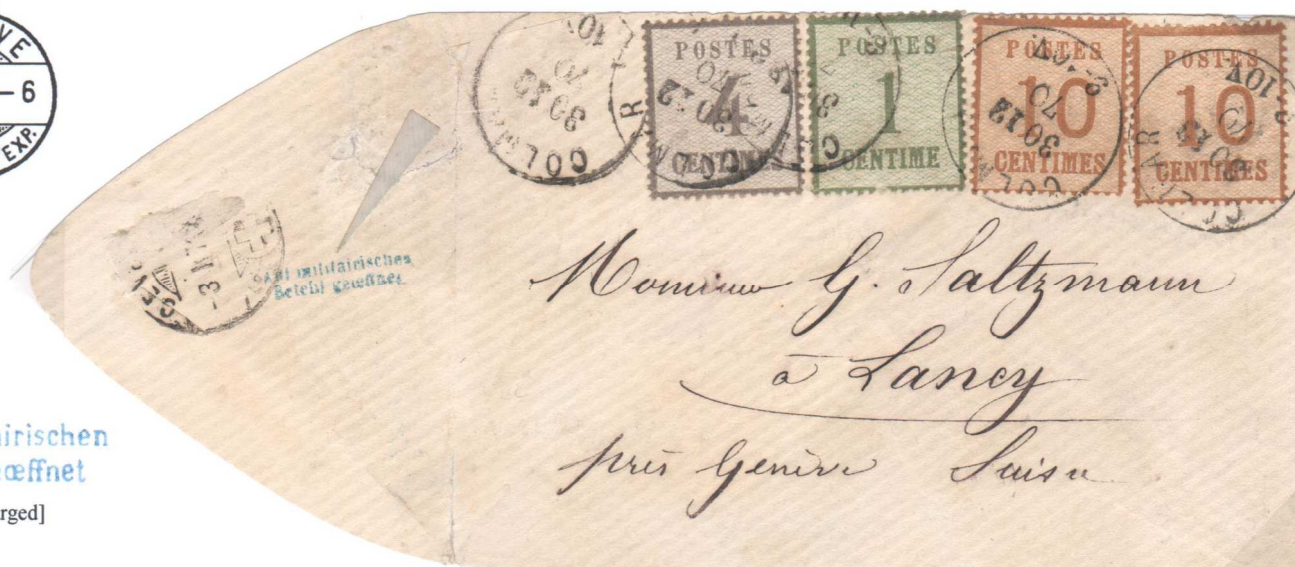 - 6
EXP.
POSTES
4
CENTIMES
POSTES
1
CENTIME
POSTES
10
CENTIMES
POSTES
10
CENTIMES
COLMAR
30 12
70
COLMAR
30 12
70
Auf militairischen
Befehl geœffnet
Monsieur G. Saltzmann
à Lancy
près Genève Suisse
irischen
œffnet
rged]